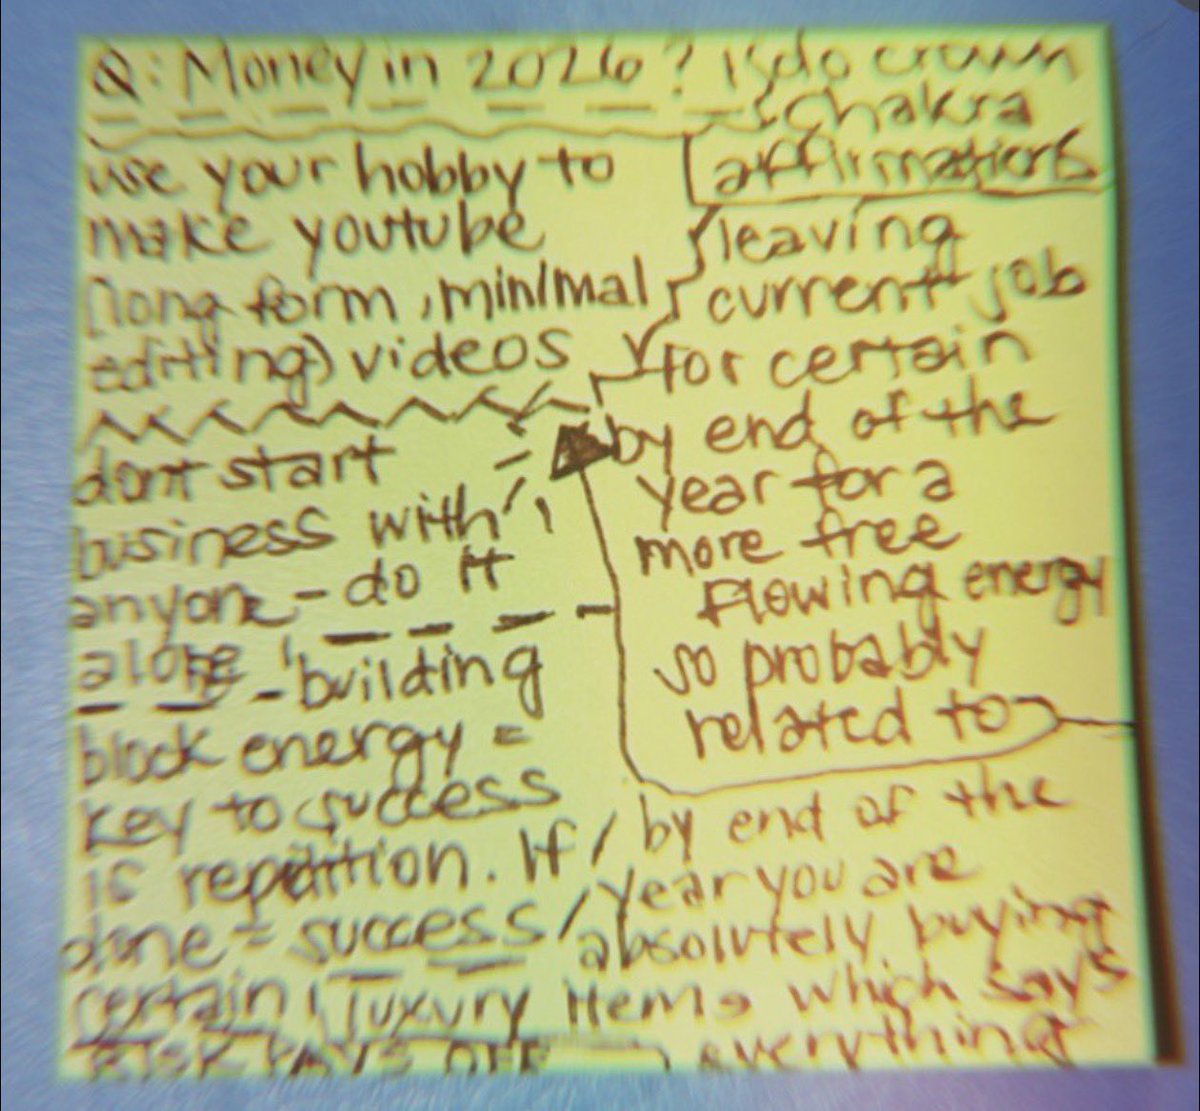 Q: Money in 2026?
do crown
chakra
affirmations
use your hobby to
make youtube
(long form, minimal
editing) videos
dont start
business with
anyone - do it
alone! - building
block energy =
key to success
is repetition. If
done = success
leaving
current job
for certain
by end of the
year for a
more free
flowing energy
so probably
related to
by end of the
year you are
absolutely buying
certain luxury items which says
RISK PAYS OFF everything